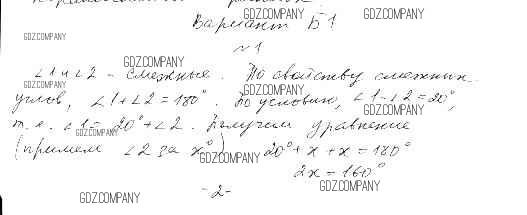 GDZ.COMPANY GDZ.COMPANY
Вариант Б1
GDZ.COMPANY
№1
GDZ.COMPANY
∠1 и ∠2 - смежные. По свойству смежных
GDZ.COMPANY GDZ.COMPANY
углов, ∠1+∠2=180°. По условию, ∠1-∠2=20°,
GDZ.COMPANY
т.е. ∠1=20°+∠2. Получим уравнение
GDZ.COMPANY
(примем ∠2 за x°) 20°+x+x=180°
GDZ.COMPANY
2x=160°
GDZ.COMPANY
-2-
GDZ.COMPANY